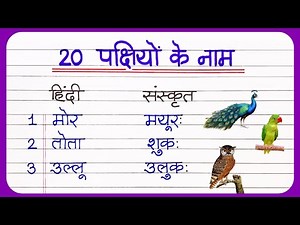 20 पक्षियों के नाम
हिंदी संस्कृत
1 मोर मयूरः
2 तोता शुकः
3 उल्लू उलुकः